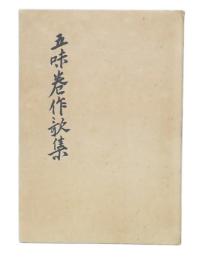 五味巻作歌集